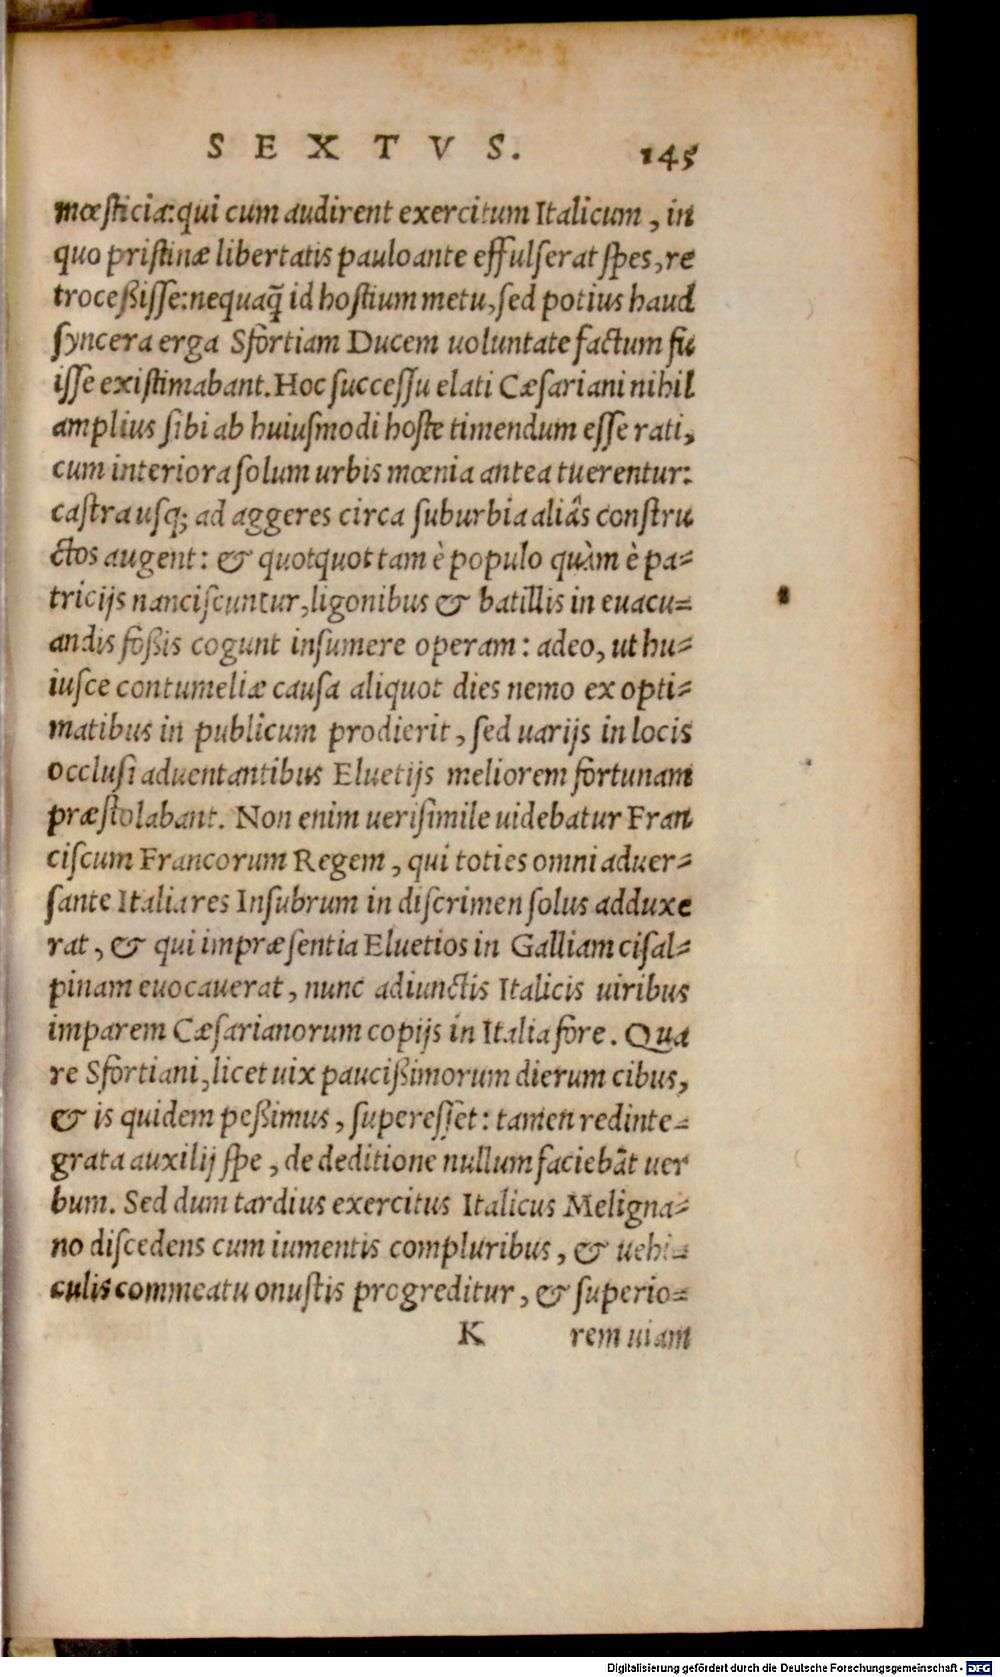 SEXTVS. 145
mœſticia: qui cum audirent exercitum Italicum, in
quo priſtinæ libertatis pauloante effulſerat ſpes, re
troceßiſſe: nequaq̃ id hoſtium metu, ſed potius haud
ſyncera erga Sfortiam Ducem uoluntate factum fu
iſſe exiſtimabant. Hoc ſucceſſu elati Cæſariani nihil
amplius ſibi ab huiuſmodi hoſte timendum eſſe rati,
cum interiora ſolum urbis mœnia antea tuerentur:
caſtra uſq; ad aggeres circa ſuburbia aliâs conſtru
ctos augent: & quotquot tam è populo quàm è pa-
tricijs nanciſcuntur, ligonibus & batillis in euacu-
andis foßis cogunt inſumere operam: adeo, ut hu-
iuſce contumeliæ cauſa aliquot dies nemo ex opti-
matibus in publicum prodierit, ſed uarijs in locis
occluſi aduentantibus Eluetijs meliorem fortunam
præſtolabant. Non enim ueriſimile uidebatur Fran
ciſcum Francorum Regem, qui toties omni aduer-
ſante Italia res Inſubrum in diſcrimen ſolus adduxe
rat, & qui impræſentia Eluetios in Galliam ciſal-
pinam euocauerat, nunc adiunctis Italicis uiribus
imparem Cæſarianorum copijs in Italia fore. Qua
re Sfortiani, licet uix pauciſſimorum dierum cibus,
& is quidem peßimus, ſupereſſet: tamen redinte-
grata auxilij ſpe, de deditione nullum faciebãt uer
bum. Sed dum tardius exercitus Italicus Meligna-
no diſcedens cum iumentis compluribus, & uehi-
culis commeatu onuſtis progreditur, & ſuperio-
K rem uiam
Digitalisierung gefördert durch die Deutsche Forschungsgemeinschaft - DFG